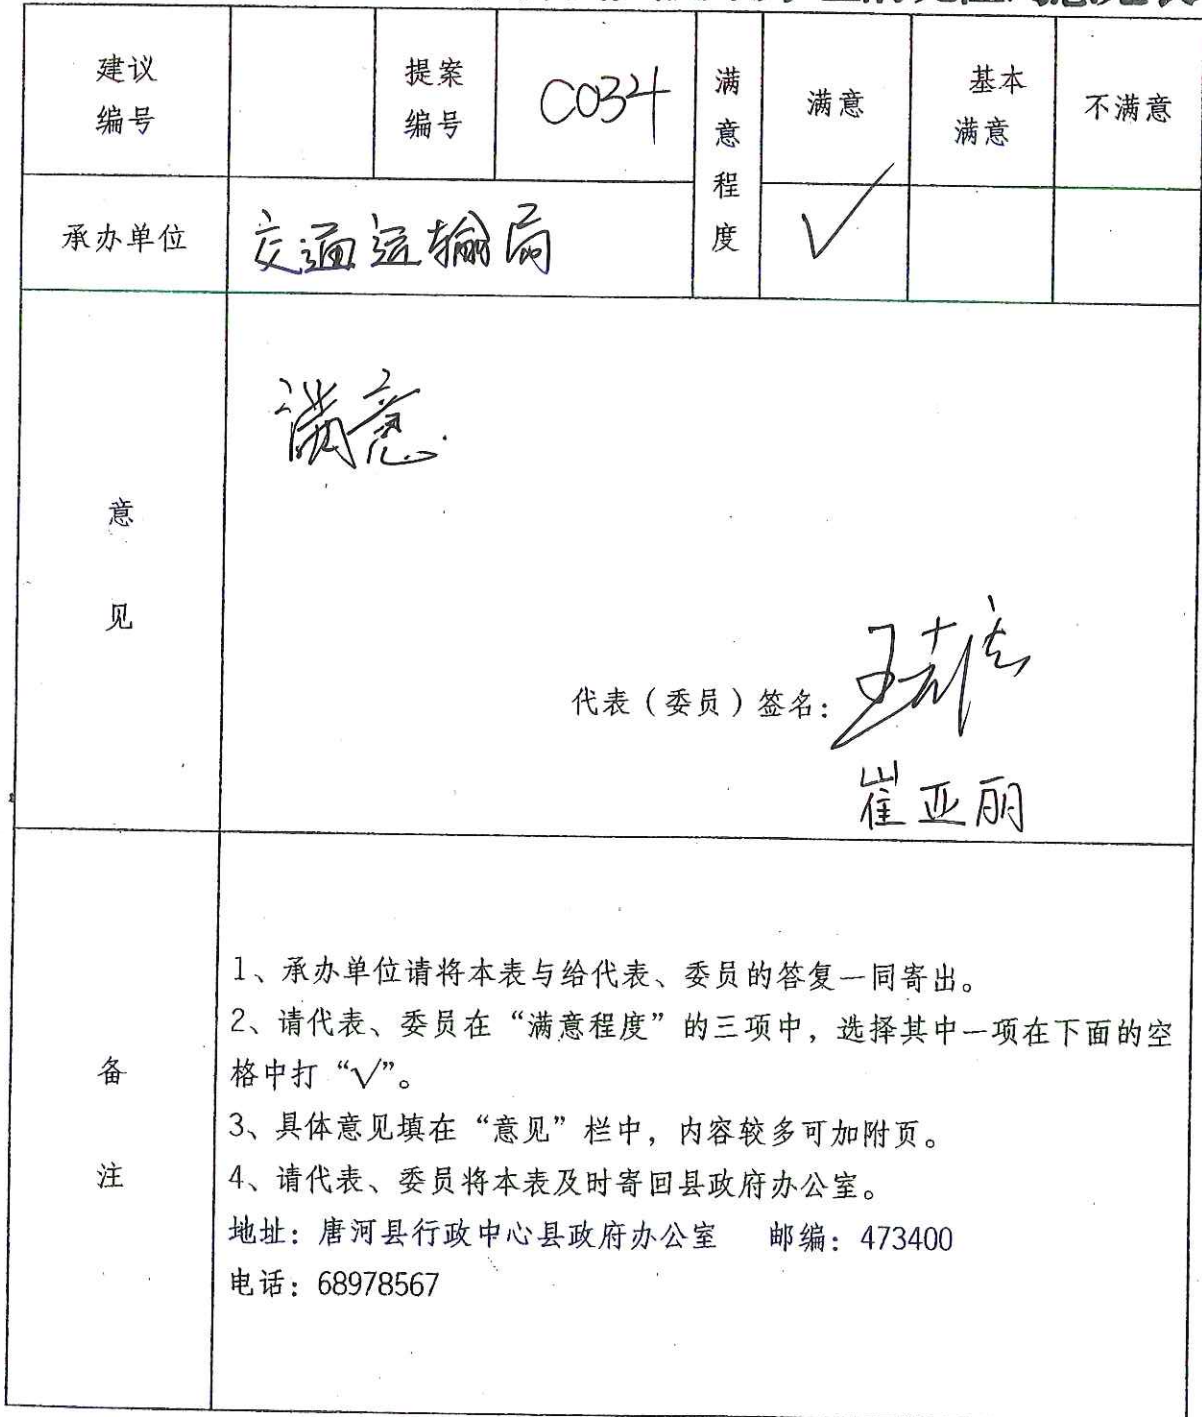 建议
编号
提案
编号
C034
满意程度
满意
基本
满意
不满意
√
承办单位
交通运输局
意见
满意.
代表（委员）签名：
崔亚丽
备注
1、承办单位请将本表与给代表、委员的答复一同寄出。
2、请代表、委员在“满意程度”的三项中，选择其中一项在下面的空
格中打“√”。
3、具体意见填在“意见”栏中，内容较多可加附页。
4、请代表、委员将本表及时寄回县政府办公室。
地址：唐河县行政中心县政府办公室 邮编：473400
电话：68978567